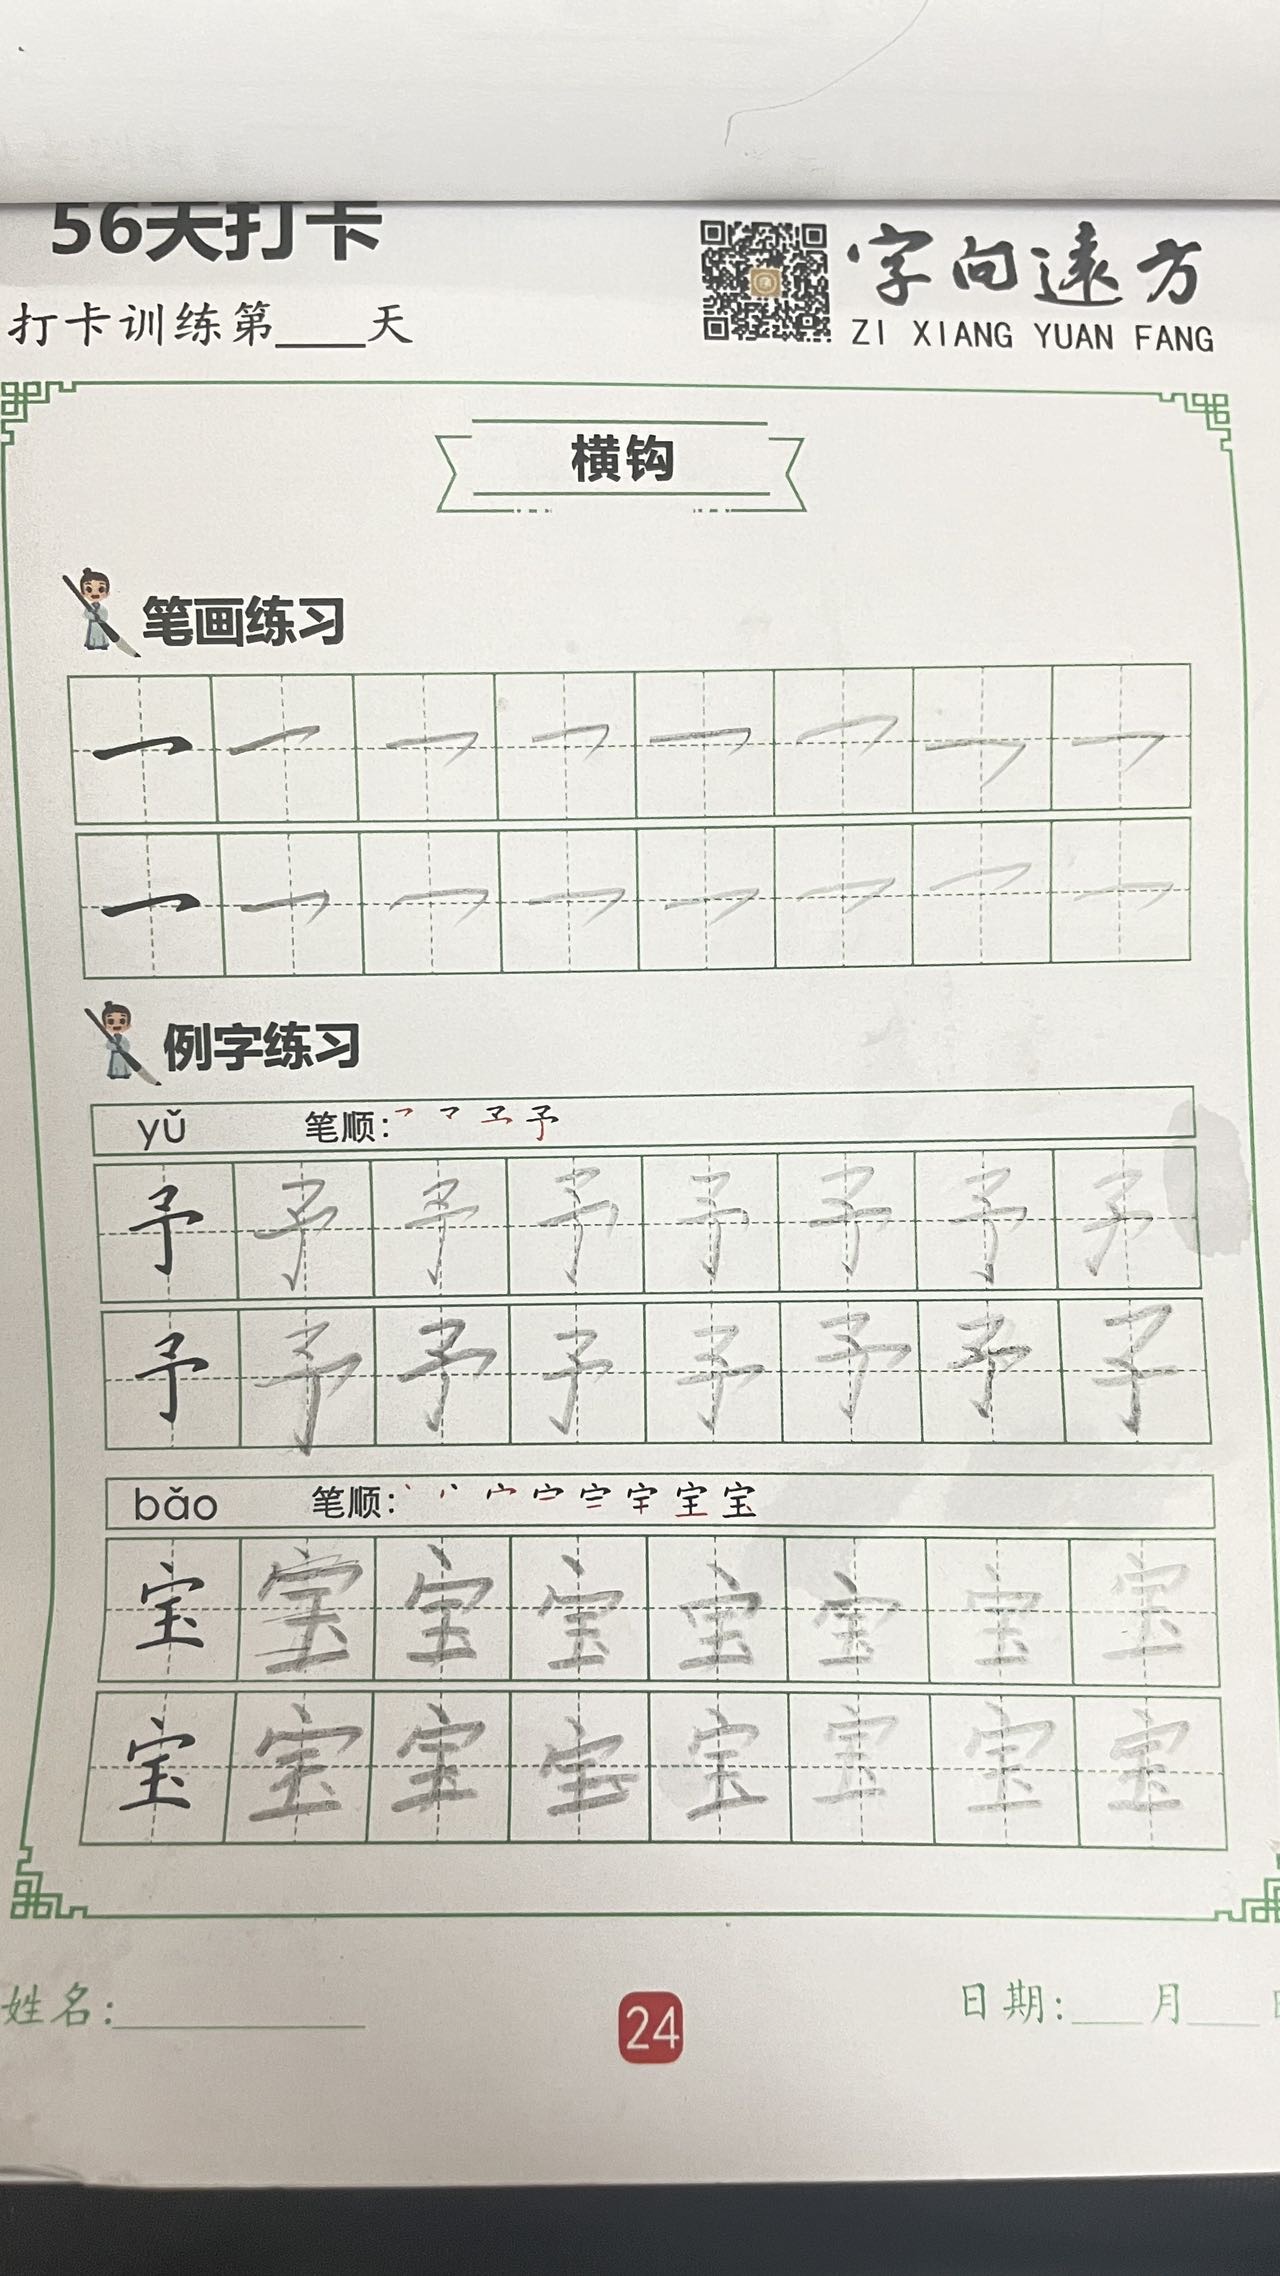 56天打卡
字向远方
ZI XIANG YUAN FANG
打卡训练第____天
横钩
笔画练习
㇖ ㇖ ㇖ ㇖ ㇖ ㇖ ㇖ ㇖
㇖ ㇖ ㇖ ㇖ ㇖ ㇖ ㇖ ㇖
例字练习
yǔ 笔顺:
予 予 予 予 予 予 予 予
予 予 予 予 予 予 予 予
bǎo 笔顺:
宝 宝 宝 宝 宝 宝 宝 宝
宝 宝 宝 宝 宝 宝 宝 宝
姓名:
24
日期:___月___